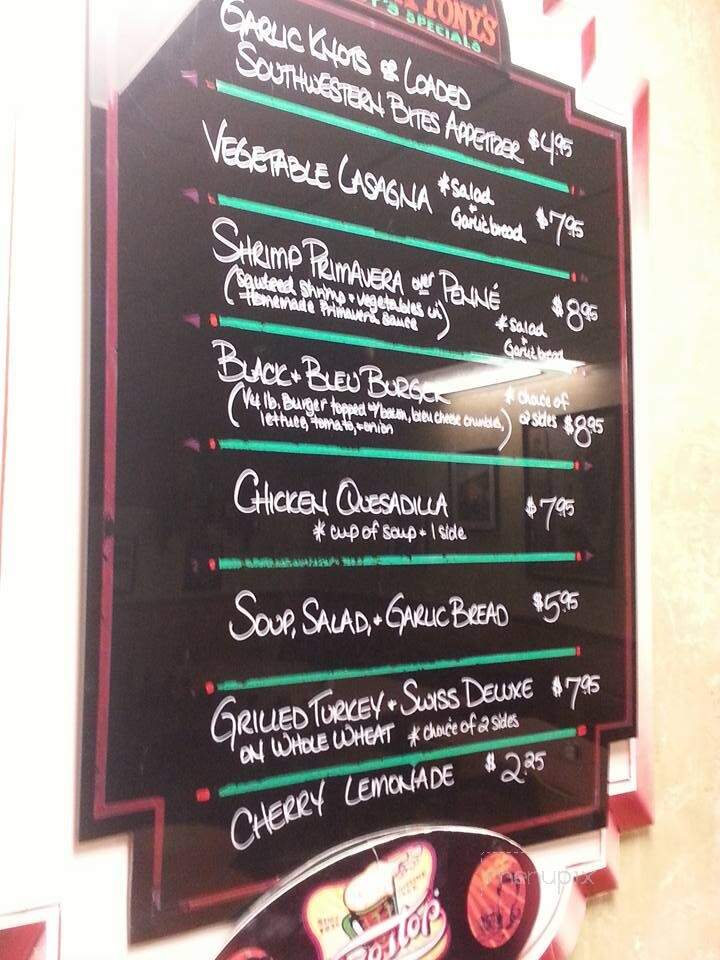 TONY'S
SPECIALS
GARLIC KNOTS OR LOADED
SOUTHWESTERN BITES APPETIZER $4.95
VEGETABLE LASAGNA *salad
+
Garlic bread $7.95
SHRIMP PRIMAVERA over PENNÉ $8.95
(Sauteed Shrimp + vegetables w/
Homemade Primavera sauce)
*salad
+
Garlic bread
BLACK + BLEU BURGER *choice of
2 sides $8.95
(1/4 lb. Burger topped w/ bacon, bleu cheese crumbles,
lettuce, tomato, + onion)
CHICKEN QUESADILLA $7.95
*cup of soup + 1 side
SOUP, SALAD, + GARLIC BREAD $5.95
GRILLED TURKEY + SWISS DELUXE $7.95
ON WHOLE WHEAT *choice of 2 sides
CHERRY LEMONADE $2.25
menupix